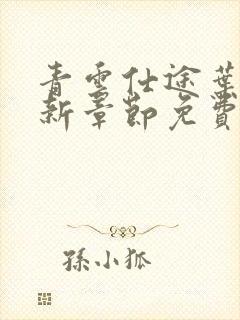 青雲仕途葉
新章節免費
孫小狐